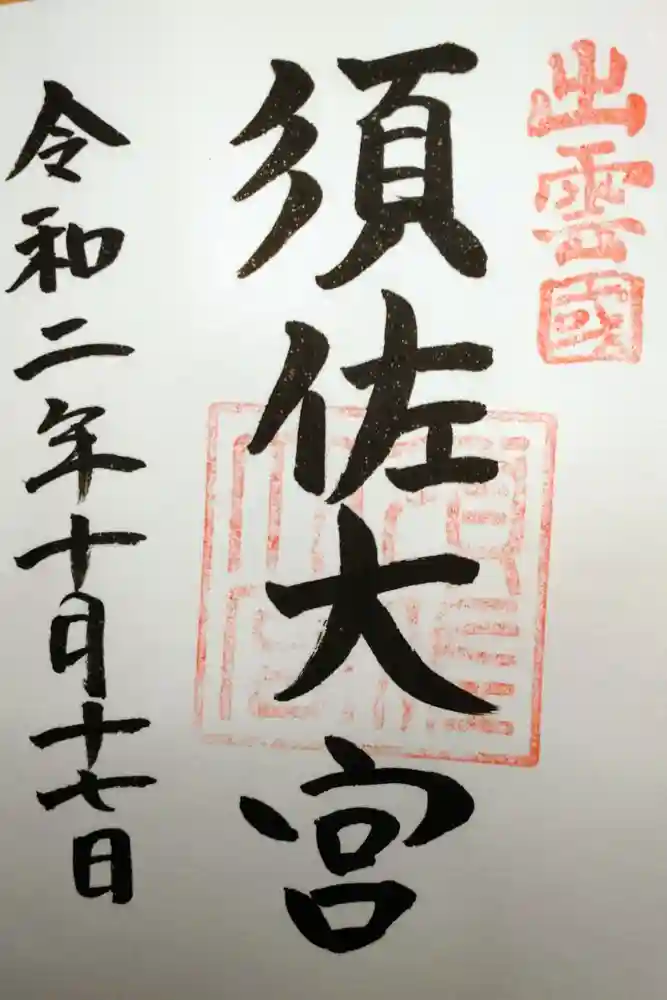 出雲國
須佐大宮
令和二年十月十七日